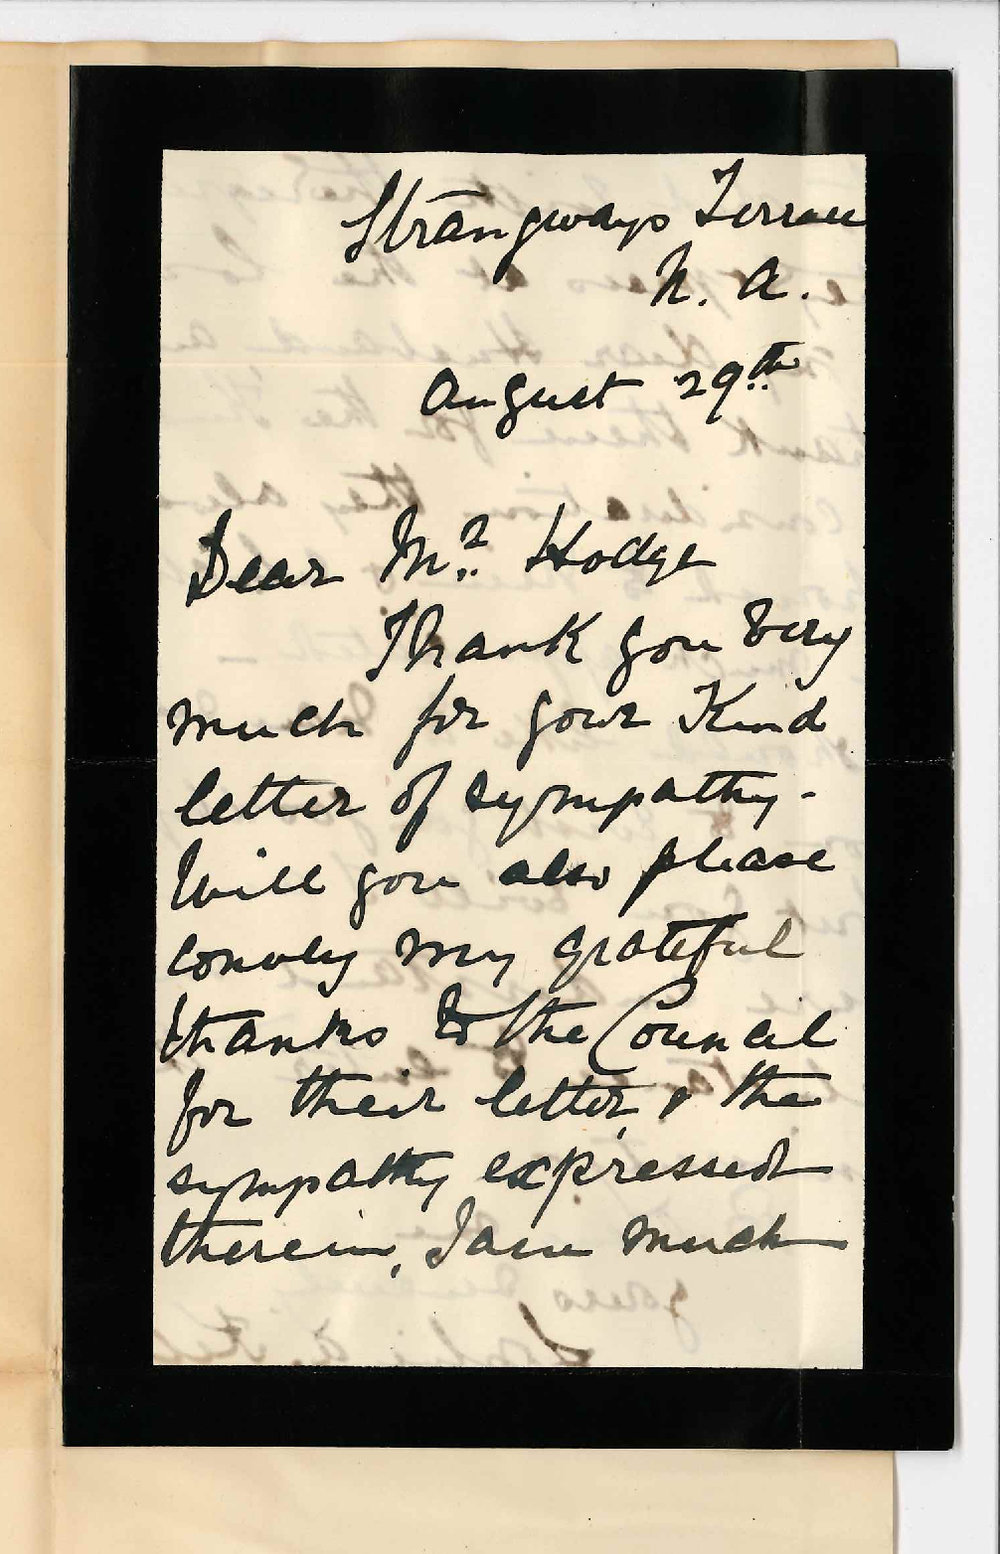 Strangways Terrace
N. A.
August 29th
Dear Mr. Hodge
Thank you very
much for your Kind
letter of sympathy -
Will you also please
convey my grateful
thanks to the Council
for their letter, & the
sympathy expressed
therein, I am much